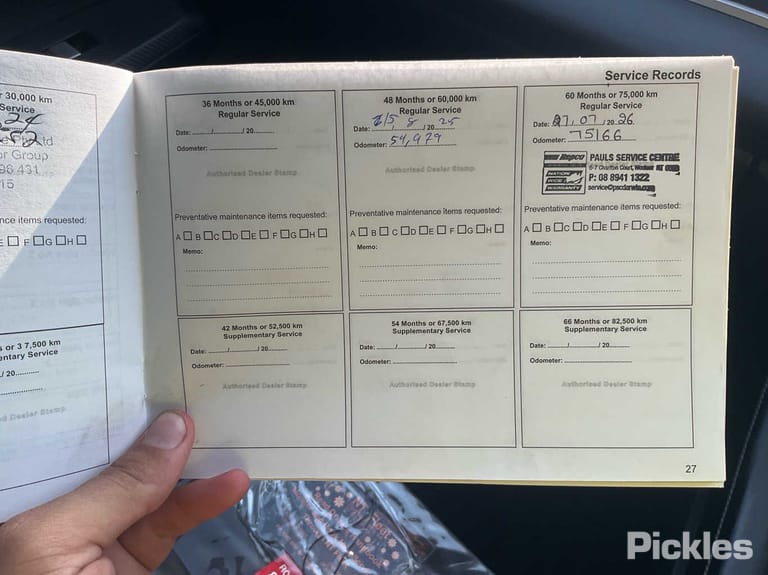 r 30,000 km
Service
24
Ltd
or Group
98 431
15
nce items requested:
E F G H
s or 3 7,500 km
entary Service
/ 20
ed Dealer Stamp
Service Records
36 Months or 45,000 km
Regular Service
Date: / / 20
Odometer:
Authorised Dealer Stamp
Preventative maintenance items requested:
A B C D E F G H
Memo:
48 Months or 60,000 km
Regular Service
Date: 8 / 20 25
Odometer: 54,979
Authorised Dealer Stamp
Preventative maintenance items requested:
A B C D E F G H
Memo:
60 Months or 75,000 km
Regular Service
Date: 07 / 20 26
Odometer: 75166
Repco
NATION
WIDE
WARRANTY
PAULS SERVICE CENTRE
P: 08 8941 1322
Preventative maintenance items requested:
A B C D E F G H
Memo:
42 Months or 52,500 km
Supplementary Service
Date: / / 20
Odometer:
Authorised Dealer Stamp
54 Months or 67,500 km
Supplementary Service
Date: / / 20
Odometer:
Authorised Dealer Stamp
66 Months or 82,500 km
Supplementary Service
Date: / / 20
Odometer:
Authorised Dealer Stamp
27
Pickles